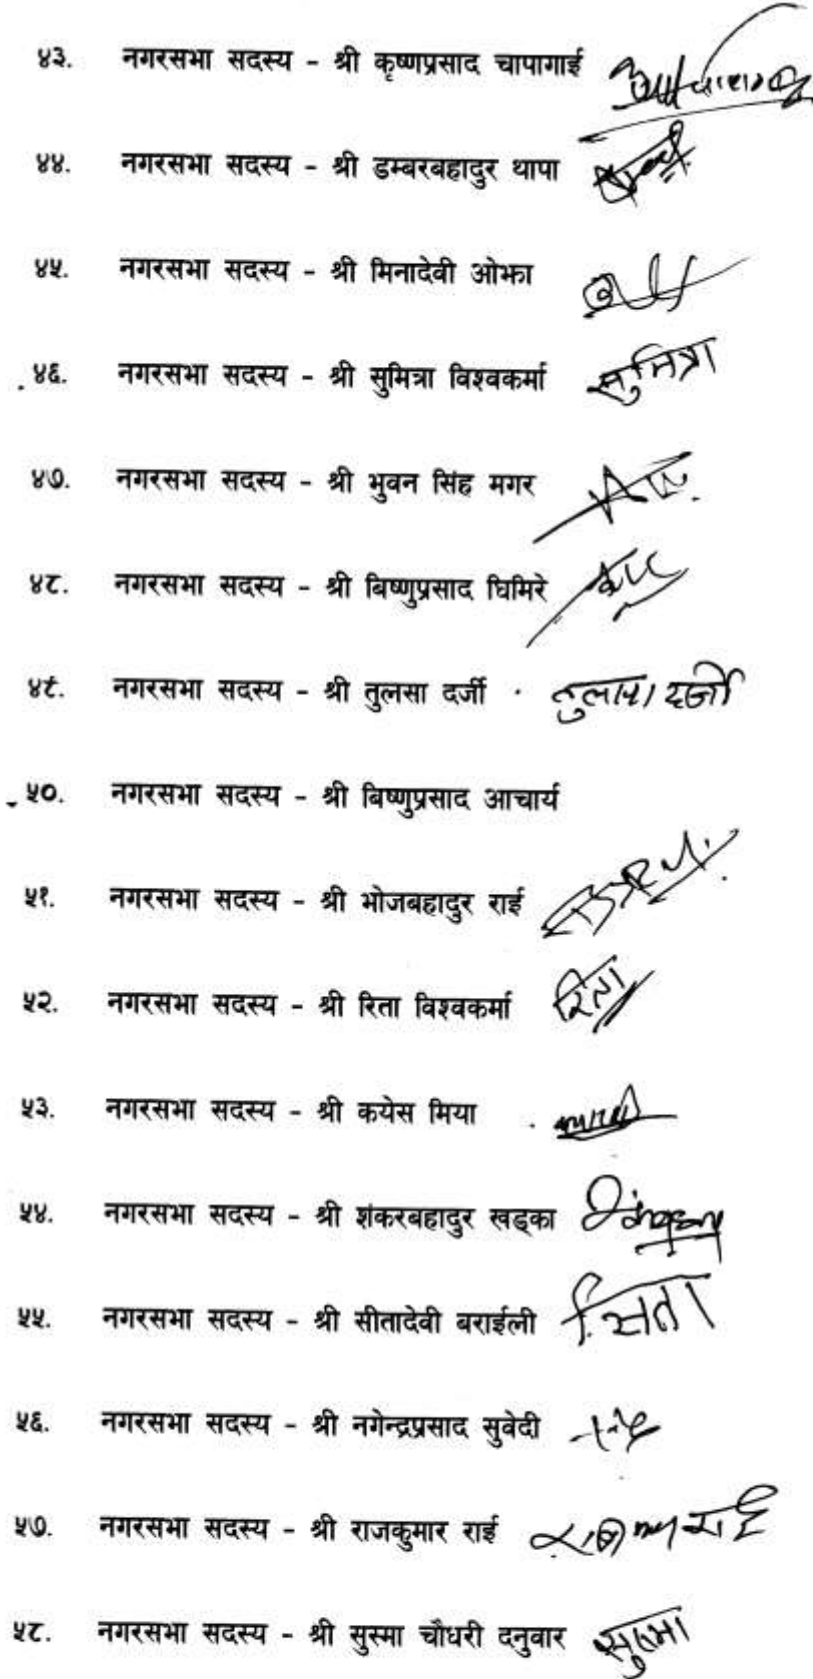 ४३. नगरसभा सदस्य - श्री कृष्णप्रसाद चापागाई
४४. नगरसभा सदस्य - श्री डम्बरबहादुर थापा
४५. नगरसभा सदस्य - श्री मिनादेवी ओझा
४६. नगरसभा सदस्य - श्री सुमित्रा विश्वकर्मा सुमित्रा
४७. नगरसभा सदस्य - श्री भुवन सिंह मगर
४८. नगरसभा सदस्य - श्री बिष्णुप्रसाद घिमिरे
४९. नगरसभा सदस्य - श्री तुलसा दर्जी तुलसा दर्जी
५०. नगरसभा सदस्य - श्री बिष्णुप्रसाद आचार्य
५१. नगरसभा सदस्य - श्री भोजबहादुर राई
५२. नगरसभा सदस्य - श्री रिता विश्वकर्मा रिता
५३. नगरसभा सदस्य - श्री कयेस मिया
५४. नगरसभा सदस्य - श्री शंकरबहादुर खड्का
५५. नगरसभा सदस्य - श्री सीतादेवी बराईली सिता
५६. नगरसभा सदस्य - श्री नगेन्द्रप्रसाद सुवेदी
५७. नगरसभा सदस्य - श्री राजकुमार राई
५८. नगरसभा सदस्य - श्री सुस्मा चौधरी दनुवार